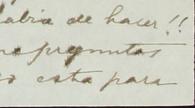 abia de hacer!!
preguntas
esta para